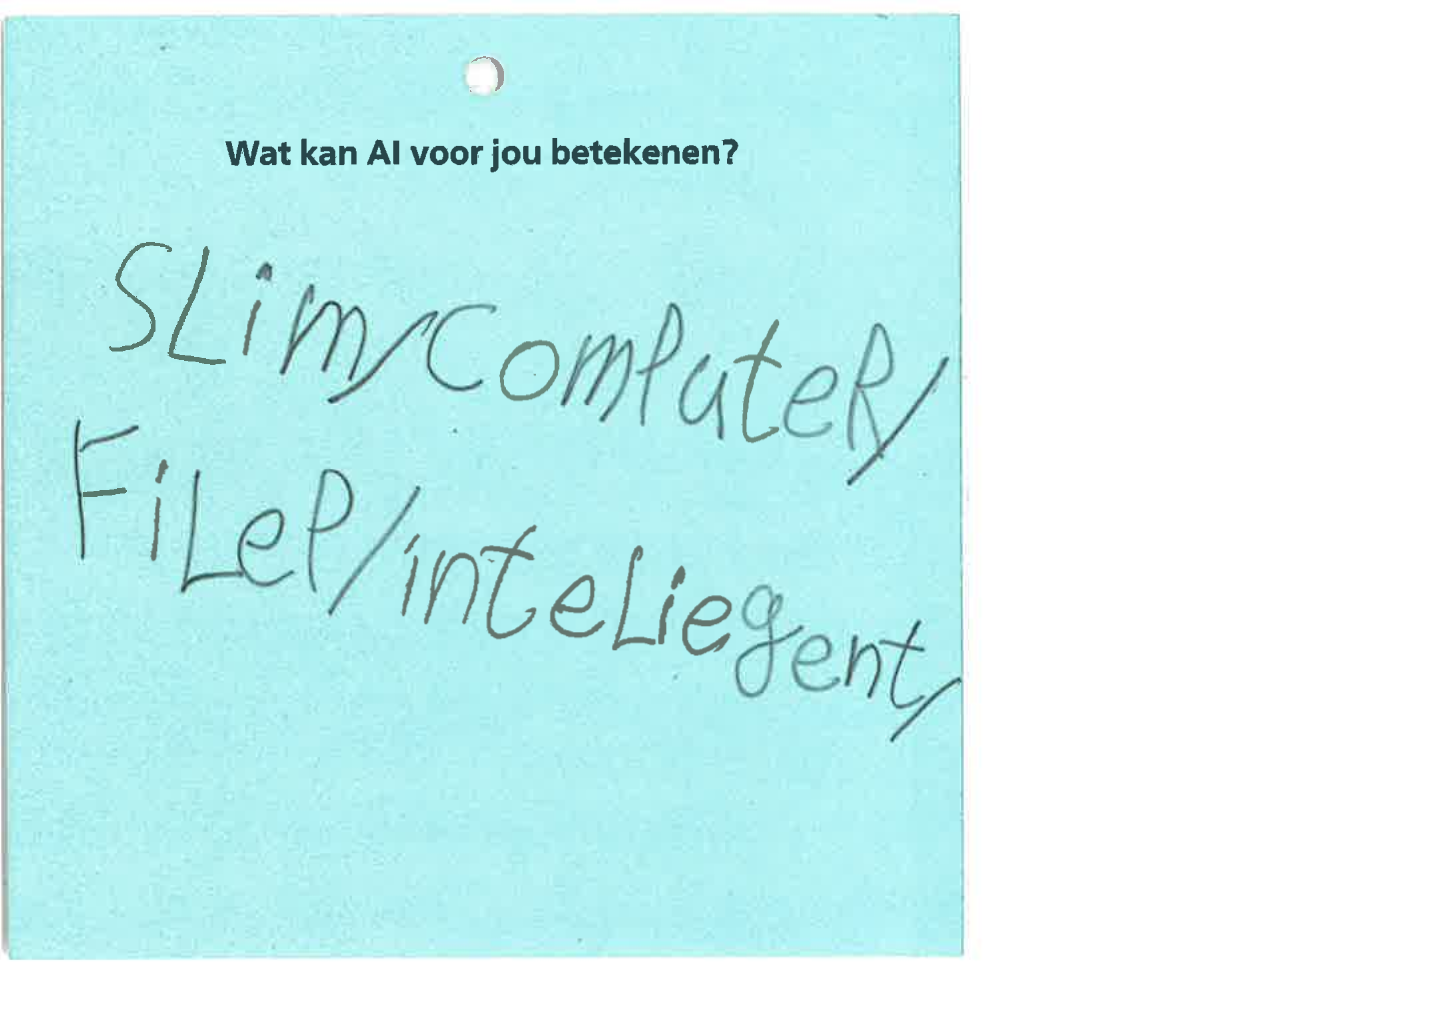 Wat kan AI voor jou betekenen?
SLim/computeR/
FiLeP/inteLiegent/